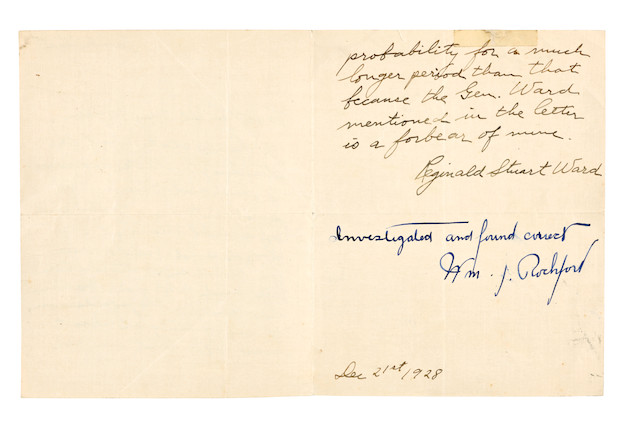 probability for a much
longer period than that
because the Gen. Ward
mentioned in the letter
is a forbear of mine.
Reginald Stuart Ward
Investigated and found correct
Wm. J. Rochfort
Dec 21st/1928